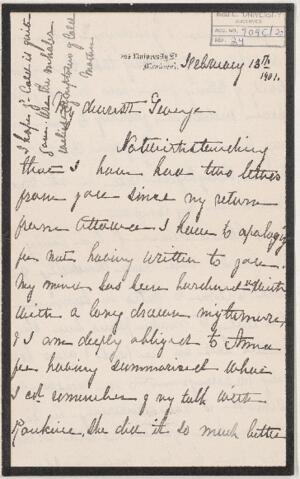 McGILL UNIVERSITY
ARCHIVES
ACC. NO. 909C/2
REF. 24
I hope yr Cold is quite
gone. Use the inhaler
at first symptom of Cold
Mother
University St
Montreal.
February 13th
1901.
My dearest George
Notwithstanding
that I have had two letters
from you since my return
from Ottawa I have to apologize
for not having written to you.
My mind has been burdened with
with a long drawn nightmare,
& I am deeply obliged to Anna
for having summarised what
I cd. remember of my talk with
Rankine. She did it so much better